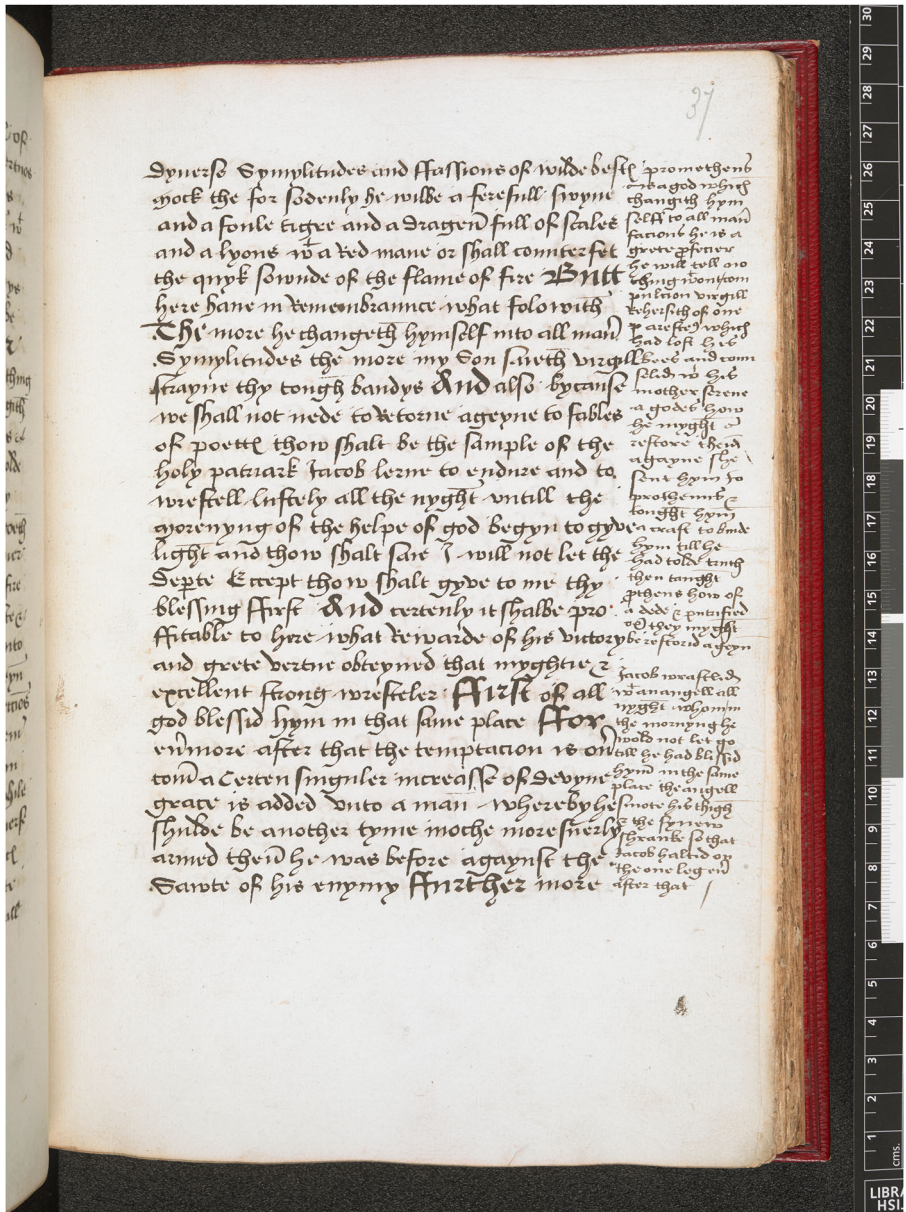 37
dyuerse Symylitudes and ffassions of wilde best
mock the for sodenly he wilbe a ferefull swyne
and a foule tigre and a dragen full of scales
and a lyons wt a Red mane or shall counterfet
the quyk sownde of the flame of fire Butt
here haue in Remembraunce what folowith
The more he changeth hymself into all man
Symylitudes the more my Son saieth virgill
strayne thy tough bandys And also bycause
we shall not nede to Retorne ageyne to fables
of poett thow shalt be the sample of the
holy patriark Jacob lerne to endure and to
wrestell lustely all the nyght vntill the
morenyng of the helpe of god begyn to gyve
light and thow shalt saie I will not let the
depte Except thow shalt gyve to me thy
blessing ffirst And certenly it shalbe pro
ffitable to here what Rewarde of his victory
and grete vertue obteyned that myghtie &
excellent strong wresteler ffirst of all
god blessid hym in that same place ffor
eumore after that the temptacion is ou
com a Certen singuler increasse of devyne
grace is added vnto a man whereby he
shulde be another tyme moche more suerly
armed then he was before agaynst the
Sawte of his enymy ffurther more
promethens
is a god which
changith hym
selff to all man
facions he is a
grete profecier
he will tell no
thing wtout com
pulcion virgill
Rehersith of one
arested which
had lost his
bees and coun
selid wt his
mother serene
a godes how
he myght
restore them
agayne she
sent hym to
prothenis &
tought hym
a craft to binde
hym till he
had tolde truth
then taught
prothens how of
a dede & putrified
ox they myght
be restorid ageyn
Jacob wrastled
wt an angell all
nyght whom in
the mornyng he
wold not let go
till he had blissid
hym in the same
place the angell
smote his thigh
& the synew
shranke so that
Jacob haltid on
the one leg eu
after that